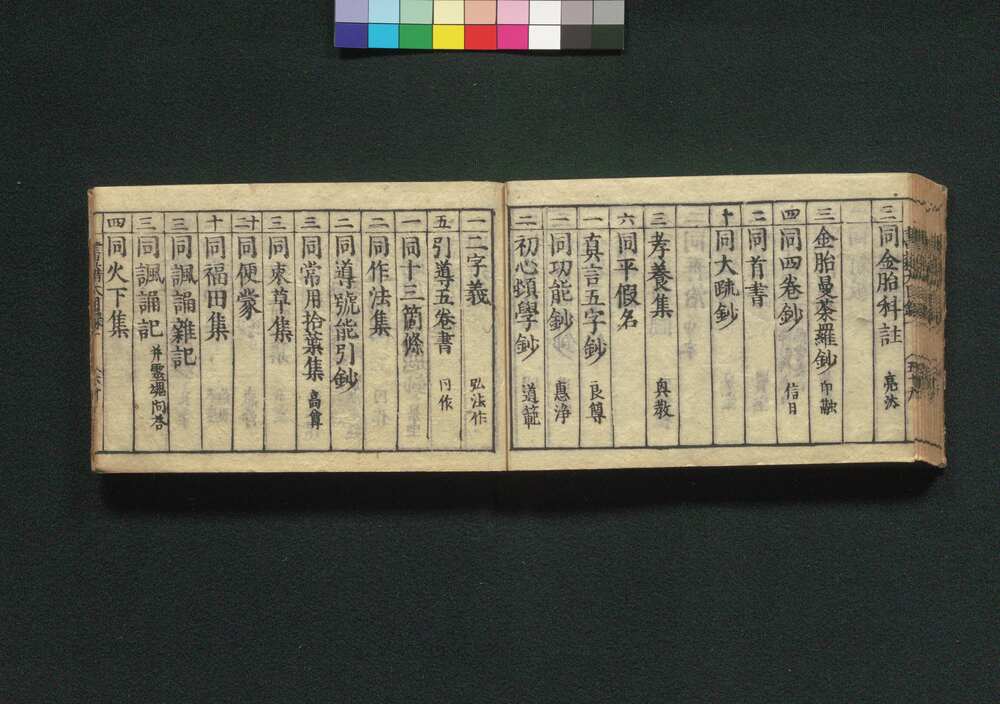 三 同金胎科註 亮汰
三 金胎曼荼羅鈔 印融
四 同四卷鈔 信日
二 同首書
十 同大疏鈔
三 孝養集 眞教
六 同平假名
一 真言五字鈔 良尊
一 同功能鈔 惠浄
二 初心頌學鈔 道範
一 二字義 弘法作
五 引導五卷書 同作
一 同十三箇條
二 同作法集
二 同導號能引鈔
三 同常用拾葉集 高尊
三 同束草集
二十 同便蒙
十 同福田集
三 同諷誦雜記
三 同諷誦記 并靈魂问答
四 同火下集